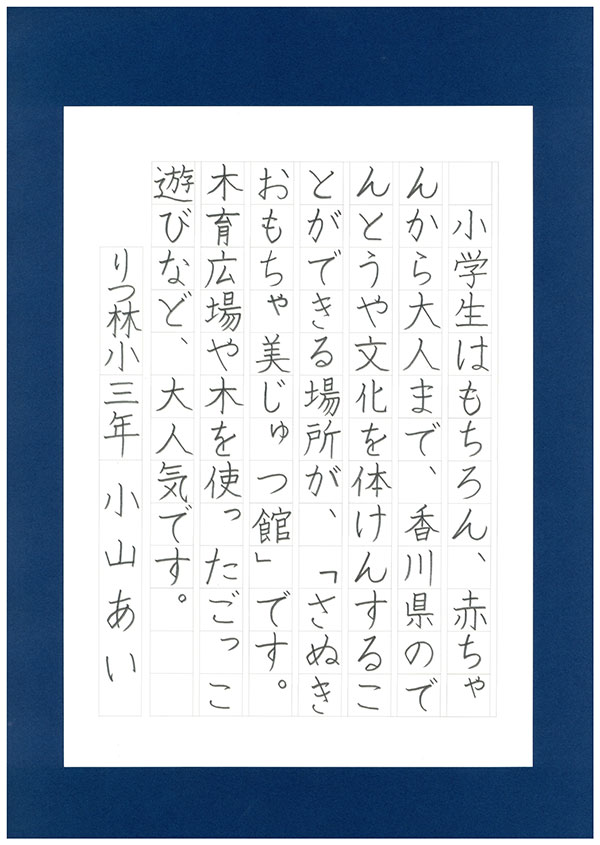 小学生はもちろん、赤ちゃ
んから大人まで、香川県ので
んとうや文化を体けんするこ
とができる場所が、「さぬき
おもちゃ美じゅつ館」です。
木育広場や木を使ったごっこ
遊びなど、大人気です。
りつ林小三年 小山あい